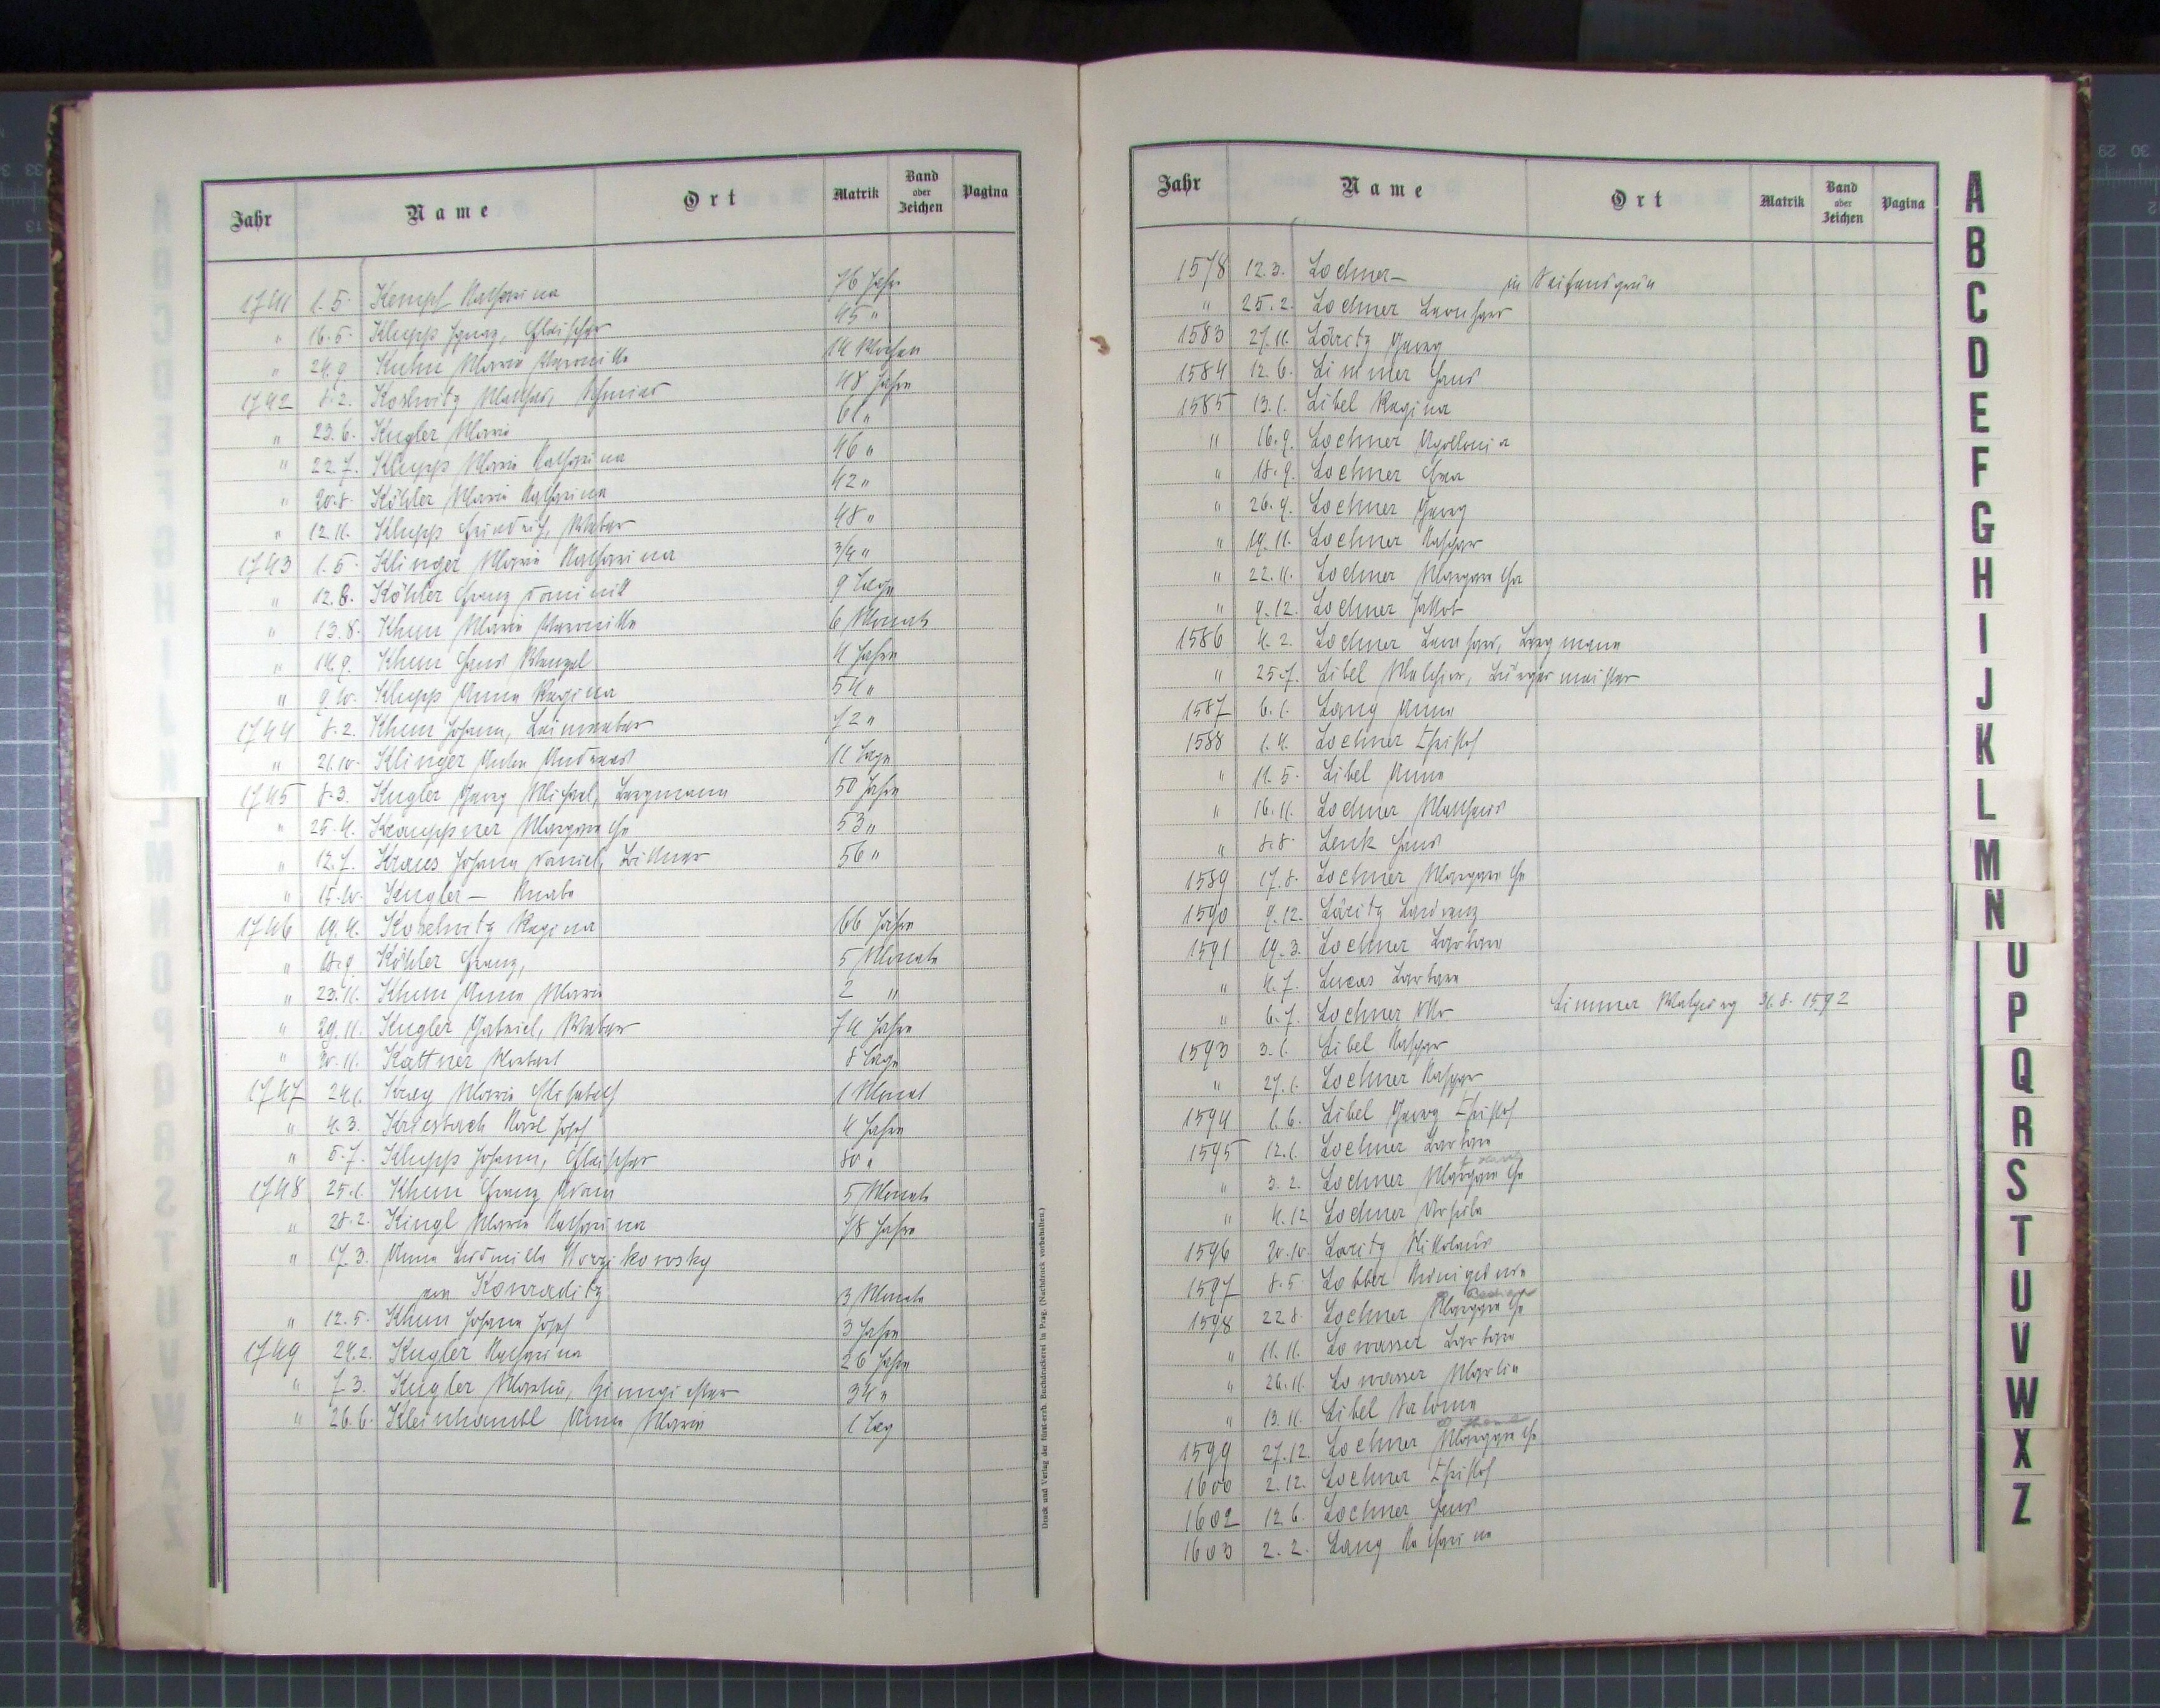 Jahr Name Ort Matrik Band oder Zeichen Pagina
1741 1.5. Kempf Katharina 76 Jahre
" 16.5. Klupp Ignaz, Fleischer 45 "
" 24.9. Kuhn Maria Veronika 14 Wochen
1742 8.2. Koshwitz Mathes, Schmied 48 Jahre
" 23.6. Kugler Maria 61 "
" 22.7. Klupp Maria Katharina 46 "
" 20.8. Köhler Maria Katharina 42 "
" 12.11. Klupp Friedrich, Weber 48 "
1743 1.5. Klinger Maria Katharina 3/4 "
" 12.8. Köhler Franz Dominik 9 Tage
" 13.8. Khun Maria Veronika 6 Monate
" 14.9. Khun Hans Wenzel 4 Jahre
" 9.10. Klupp Anna Regina 54 "
1744 8.2. Khun Johann, Leinweber 72 "
" 21.10. Klinger Anton Andreas 11 Tage
1745 8.3. Kugler Georg Michael, Bergmann 50 Jahre
" 25.4. Krauppner Margaretha 53 "
" 12.7. Kraus Johann Daniel, Bittner 56 "
" 15.10. Kugler — Knabe
1746 19.4. Koschwitz Regina 66 Jahre
" 18.9. Köhler Franz, 5 Monate
" 23.11. Khun Anna Maria 2 "
" 29.11. Kugler Gabriel, Weber 74 Jahre
" 30.11. Kattner Norbert 8 Tage
1747 24.1. Krey Maria Elisabeth 1 Monat
" 4.3. Kriesbach Karl Josef 4 Jahre
" 5.7. Klupp Johann, Fleischer 80 "
1748 25.1. Khun Franz Adam 5 Monate
" 28.2. Kingl Maria Katharina 78 Jahre
" 17.3. Anna Ludmilla Korzikovsky
von Konraditz 3 Monate
" 12.5. Khun Johann Josef 3 Jahre
1749 24.2. Kugler Katharina 26 Jahre
" 7.3. Kugler Martin, Zinngießer 34 "
" 26.6. Kleinhambl Anna Maria 1 Tag
Druck und Verlag der fürst-erzb. Buchdruckerei in Prag. (Nachdruck vorbehalten.)
Jahr Name Ort Matrik Band oder Zeichen Pagina
1578 12.3. Lochner — in Seifensgrün
" 25.2. Lochner Leonhard
1583 27.11. Läritz Georg
1584 12.6. Limmer Hans
1585 13.1. Libel Regina
" 16.9. Lochner Apollonia
" 18.9. Lochner Eva
" 26.9. Lochner Georg
" 19.11. Lochner Kaspar
" 22.11. Lochner Margaretha
" 9.12. Lochner Jakob
1586 4.2. Lochner Leonhard, Bergmann
" 25.7. Libel Melchior, Bürgermeister
1587 6.1. Lang Anna
1588 1.4. Lochner Christof
" 11.5. Libel Anna
" 16.11. Lochner Matthäus
" 8.8. Lenk Hans
1589 17.8. Lochner Margaretha
1590 9.12. Läritz Lorenz
1591 19.3. Lochner Barbara
" 4.7. Lucas Barbara
" 6.7. Lochner Limmer Walpurg 31.8. 1592
1593 3.1. Libel Kaspar
" 27.1. Lochner Kaspar
1594 1.6. Libel Georg Christof
1595 12.1. Lochner Barbara
" 3.2. Lochner Margaretha
" 4.12 Lochner Ursula
1596 20.10. Loritz Nikolaus
1597 8.5. Lobber Kunigunde
1598 22.8. Lochner Margaretha
" 11.11. Lowasser Barbara
" 26.11. Lowasser Martin
" 13.11. Libel Salome
1599 27.12. Lochner Margaretha
1600 2.12. Lochner Christof
1602 12.6. Lochner Hans
1603 2.2. Lang Katharina
A
B
C
D
E
F
G
H
I
J
K
L
M
N
P
Q
R
S
T
U
V
W
X
Z